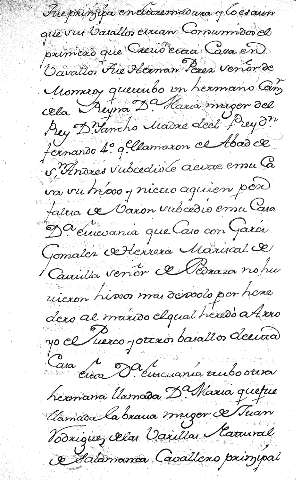 fue principal en extremadura y lo es aun
que sus Vasallos estan Consumidos el
primero que Creció esta Casa en
Vasallos fue Hernan Perez señor de
Monroy que tubo un hermano Can.
de la Reyna D.ª Maria muger del
Rey D.n Sancho Madre de el Rey D.n
fernando 4.º q.e llamaron el Abad de
S.n Andres subcediole a este en su Ca
sa su hixo y nieto a quien por
falta de Varon subcedió en su Casa
D.ª estevania que Caso con Garci
Gomalez de Herrera Mariscal de
Castilla señor de Pedraza no hu
vieron hixos mas dexolo por here
dero al marido el qual heredó a Arro
yo el Puerco y otros basallos de esta
Casa
esta D.ª estevania tubo otra
hermana llamada D.ª Maria que fue
llamada la brava muger de Juan
Rodriguez de las Varillas Natural
de Salamanca Cavallero principal